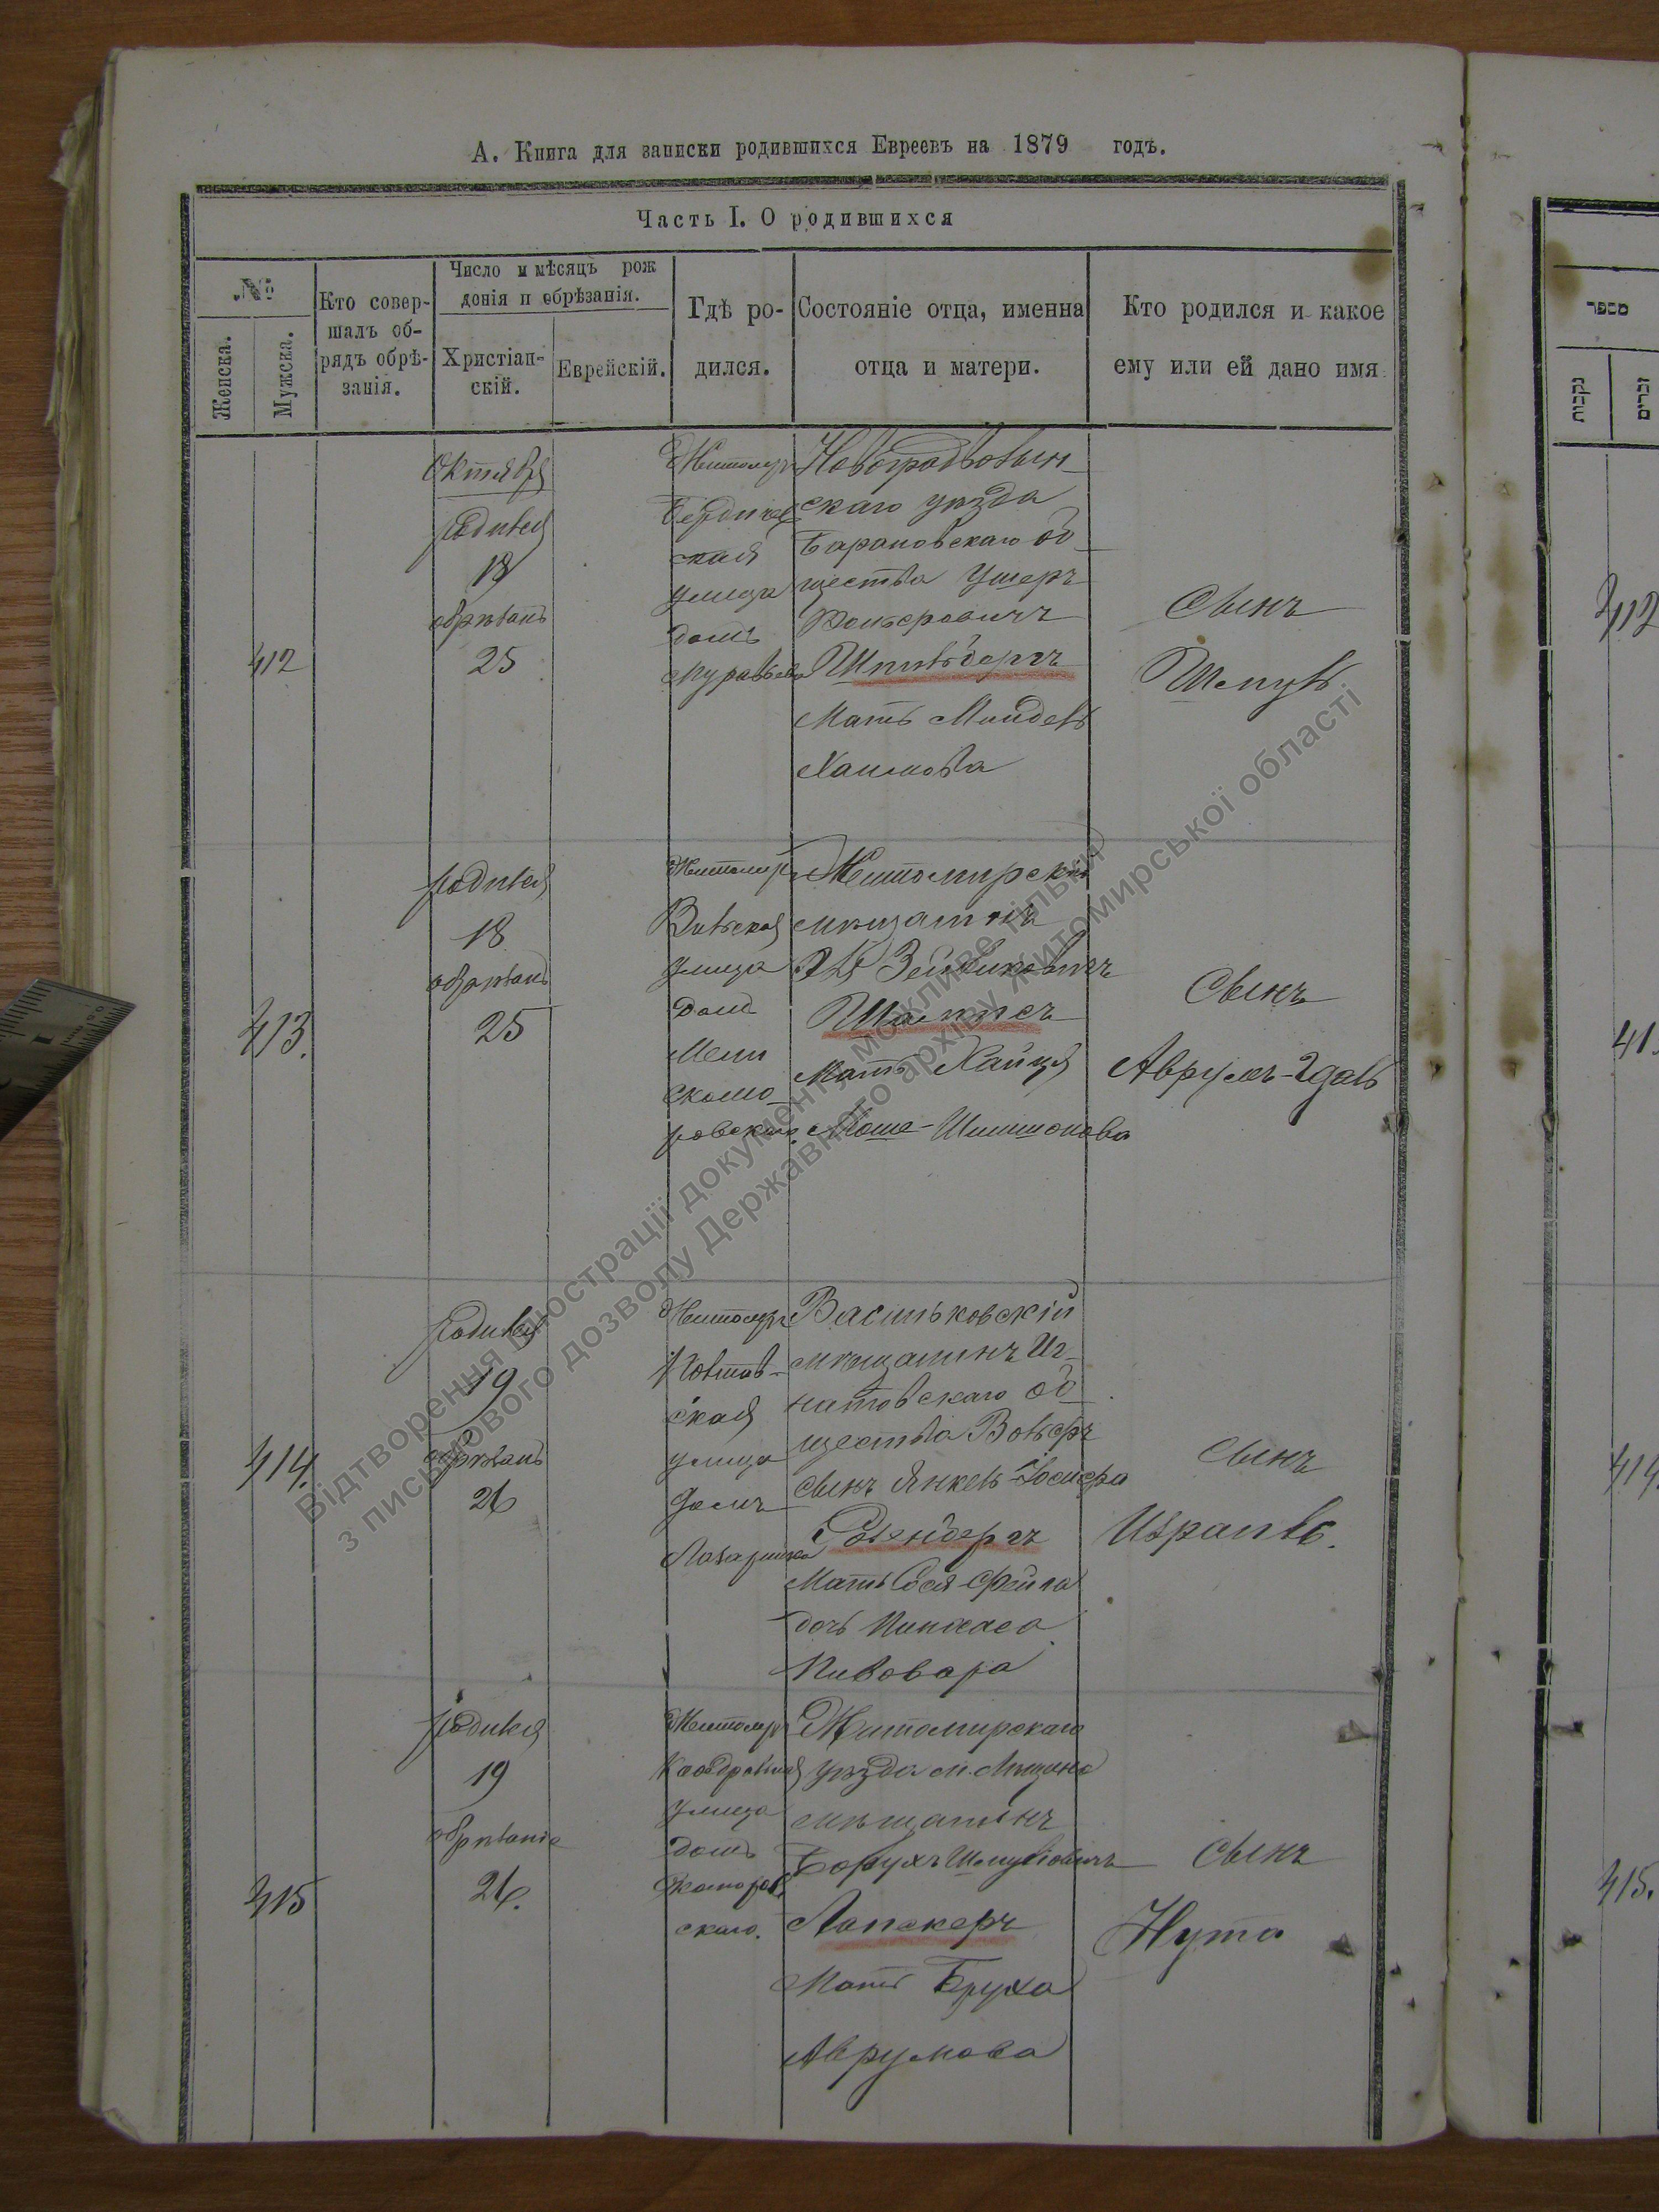 А. Книга для записки родившихся Евреевъ на 1879 годъ.
Часть I. О родившихся
№
Женска.
Мужска.
Кто совер-
шалъ об-
рядъ обрѣ-
занія.
Число и мѣсяцъ рож
донія и обрѣзанія.
Христіан-
скій.
Еврейскій.
Гдѣ ро-
дился.
Состояніе отца, именна
отца и матери.
Кто родился и какое
ему или ей дано имя
412
Октября
родился
18
обрѣзанъ
25
Житомиръ
Бердичев
ская
улица
домъ
Новоградволын-
скаго уѣзда
Барановскаго об-
щества Ушеръ
Шпильбергъ
Мать Миндель
Хаимова
Сынъ
Шмуль
413.
родился
18
обрѣзанъ
25
Житомиръ
Вильская
улица
домъ
Скомо-
ровскаго.
Житомирскій
мѣщанинъ
Мать Хайця
Моше-Шимшонова
Сынъ
Аврумъ-Идаль
414.
родился
19
обрѣзанъ
26
Житомиръ
ская
улица
домъ
Васильковскій
мѣщанинъ Иг-
натовскаго об-
щества Вольфъ
сынъ Янкель-Іосифа
Мать Бося-Фейга
дочь Пинхаса
Пивовара
сынъ
Израиль.
415
родился
19
обрѣзаніе
26.
Житомиръ
улица
домъ
Скоморов
скаго.
Житомирскаго
уѣзда м.
мѣщанинъ
Борухъ Шмулёвичъ
Лапскеръ
Мать Бруха
Аврумова
Сынъ
Нута
מספר
נקבות
זכרים
412
41
414.
415.
Відтворення ілюстрації документу можливе тільки
з письмового дозволу Державного архіву Житомирської області